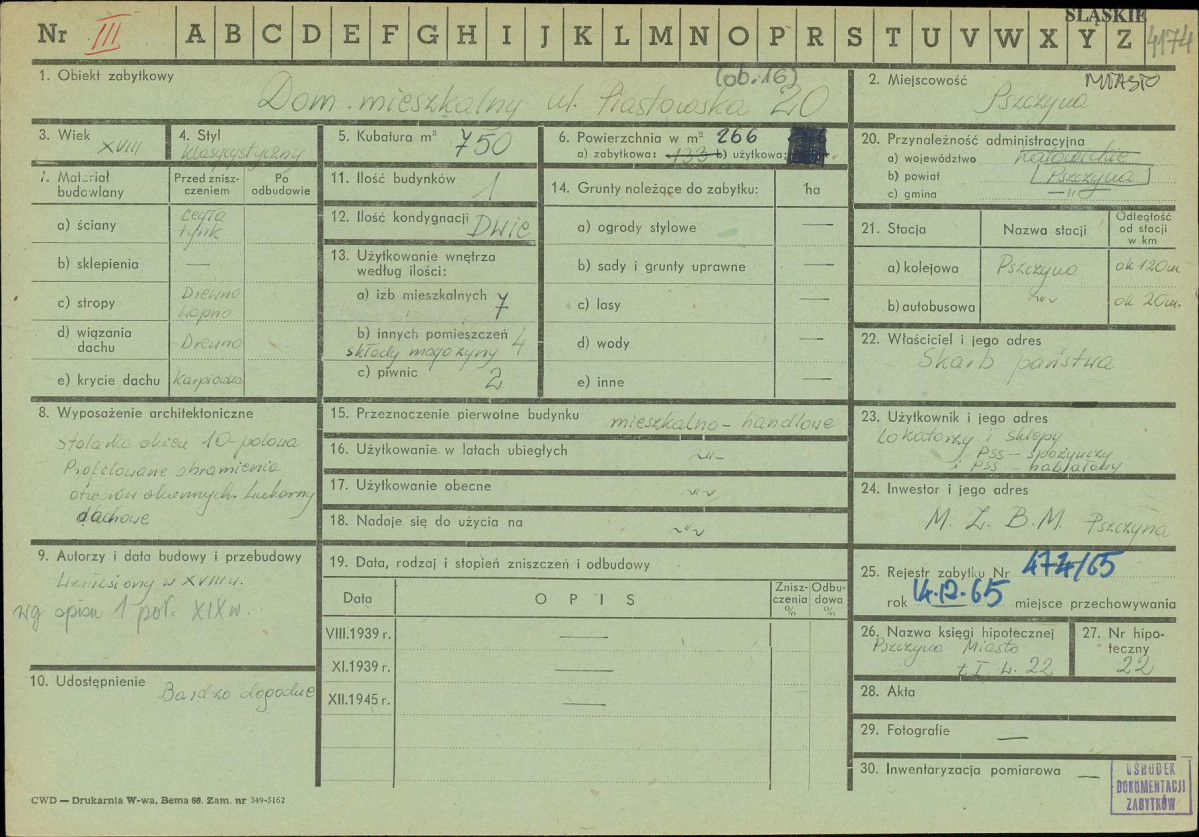 ŚLĄSKIE
Nr III A B C D E F G H I J K L M N O P R S T U V W X Y Z 4174
1. Obiekt zabytkowy (ob. 16)
Dom mieszkalny ul. Piastowska 20
2. Miejscowość MIASTO
Pszczyna
3. Wiek
XVIII
4. Styl
klasycystyczny
5. Kubatura m³ 750
6. Powierzchnia w m² 266
a) zabytkowa: 133 b) użytkowa:
20. Przynależność administracyjna
a) województwo Katowickie
b) powiat Pszczyna
c) gmina —"—
7. Materiał budowlany
Przed zniszczeniem
Po odbudowie
a) ściany cegła tynk
b) sklepienia —
c) stropy Drewno
d) wiązania dachu Drewno
e) krycie dachu Karpiówka
11. Ilość budynków 1
12. Ilość kondygnacji Dwie
13. Użytkowanie wnętrza według ilości:
a) izb mieszkalnych 7
b) innych pomieszczeń 4
składy magazyny
c) piwnic 2
14. Grunty należące do zabytku: ha
a) ogrody stylowe —
b) sady i grunty uprawne —
c) lasy —
d) wody —
e) inne —
21. Stacja
Nazwa stacji
Odległość od stacji w km
a) kolejowa Pszczyna ok 120m
b) autobusowa ~"~ ok 20m.
22. Właściciel i jego adres
Skarb państwa
8. Wyposażenie architektoniczne
Stolarka okien 10-polowa
Profilowane obramienia
otworów okiennych. Lukarny
dachowe
15. Przeznaczenie pierwotne budynku mieszkalno - handlowe
16. Użytkowanie w latach ubiegłych ~"~
17. Użytkowanie obecne ~"~
18. Nadaje się do użycia na ~"~
23. Użytkownik i jego adres
Lokatorzy i sklepy
PSS - spożywczy
i PSS - nabiałowy
24. Inwestor i jego adres
M. Z. B. M. Pszczyna
9. Autorzy i data budowy i przebudowy
Wzniesiony w XVIII w.
wg spisu 1 poł. XIX w.
19. Data, rodzaj i stopień zniszczeń i odbudowy
Data
OPIS
Zniszczenia %
Odbudowa %
VIII.1939 r. —
XI.1939 r. —
XII.1945 r. —
25. Rejestr zabytku Nr 474/65
rok 14.12.65 miejsce przechowywania
26. Nazwa księgi hipotecznej
Pszczyna Miasto
t I. L. 22
27. Nr hipoteczny
22
10. Udostępnienie Bardzo dogodne
28. Akta
29. Fotografie —
30. Inwentaryzacja pomiarowa —
OŚRODEK
DOKUMENTACJI
ZABYTKÓW
CWD — Drukarnia W-wa, Bema 60. Zam. nr 349-5162